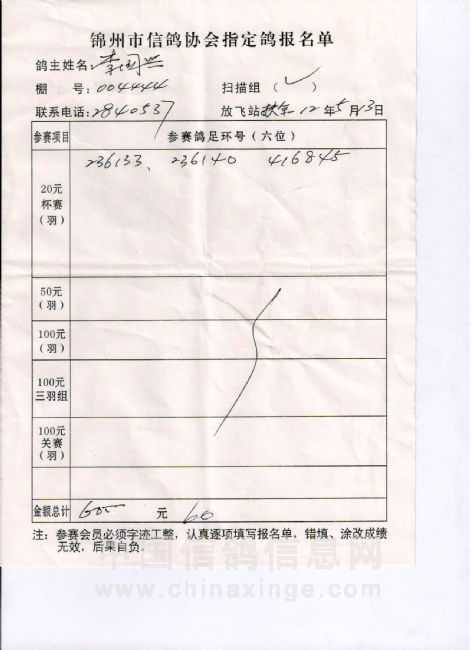 锦州市信鸽协会指定鸽报名单
鸽主姓名：李国兴
棚 号：004444 扫描组（✓）
联系电话：2840537 放飞站 扶余 12年5月13日
参赛项目 参赛鸽足环号（六位）
20元
杯赛
（羽）
236133、 236140 416845
50元
（羽）
100元
（羽）
100元
三羽组
100元
关赛
（羽）
金额总计 元 60
注：参赛会员必须字迹工整，认真逐项填写报名单，错填、涂改成绩
无效，后果自负。
中国信鸽信息网
www.chinaxinge.com